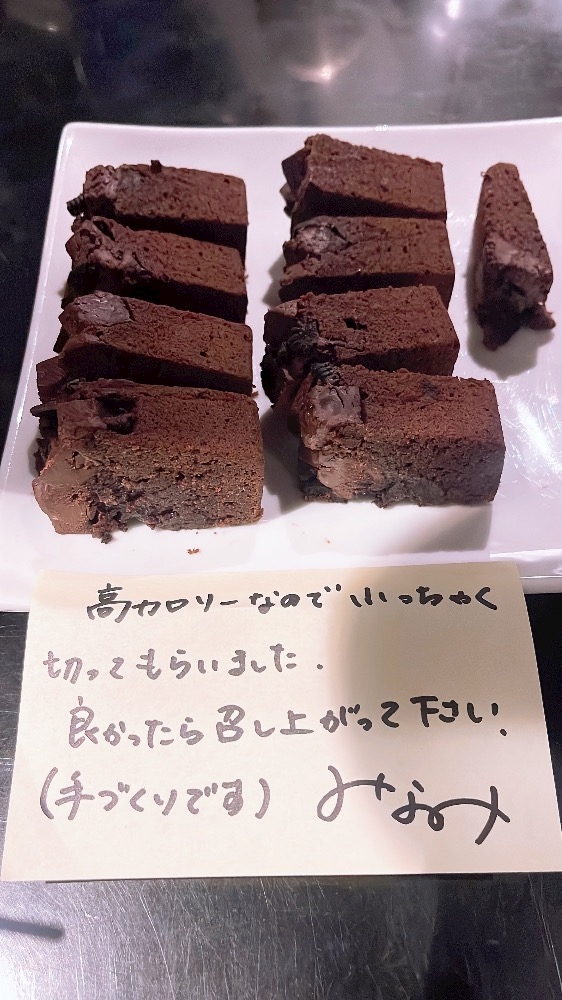 高カロリーなので小っちゃく
切ってもらいました.
良かったら召し上がって下さい!
(手づくりです)